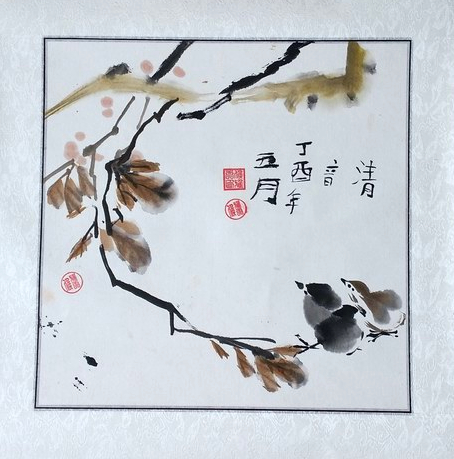 清音
丁酉年
五月